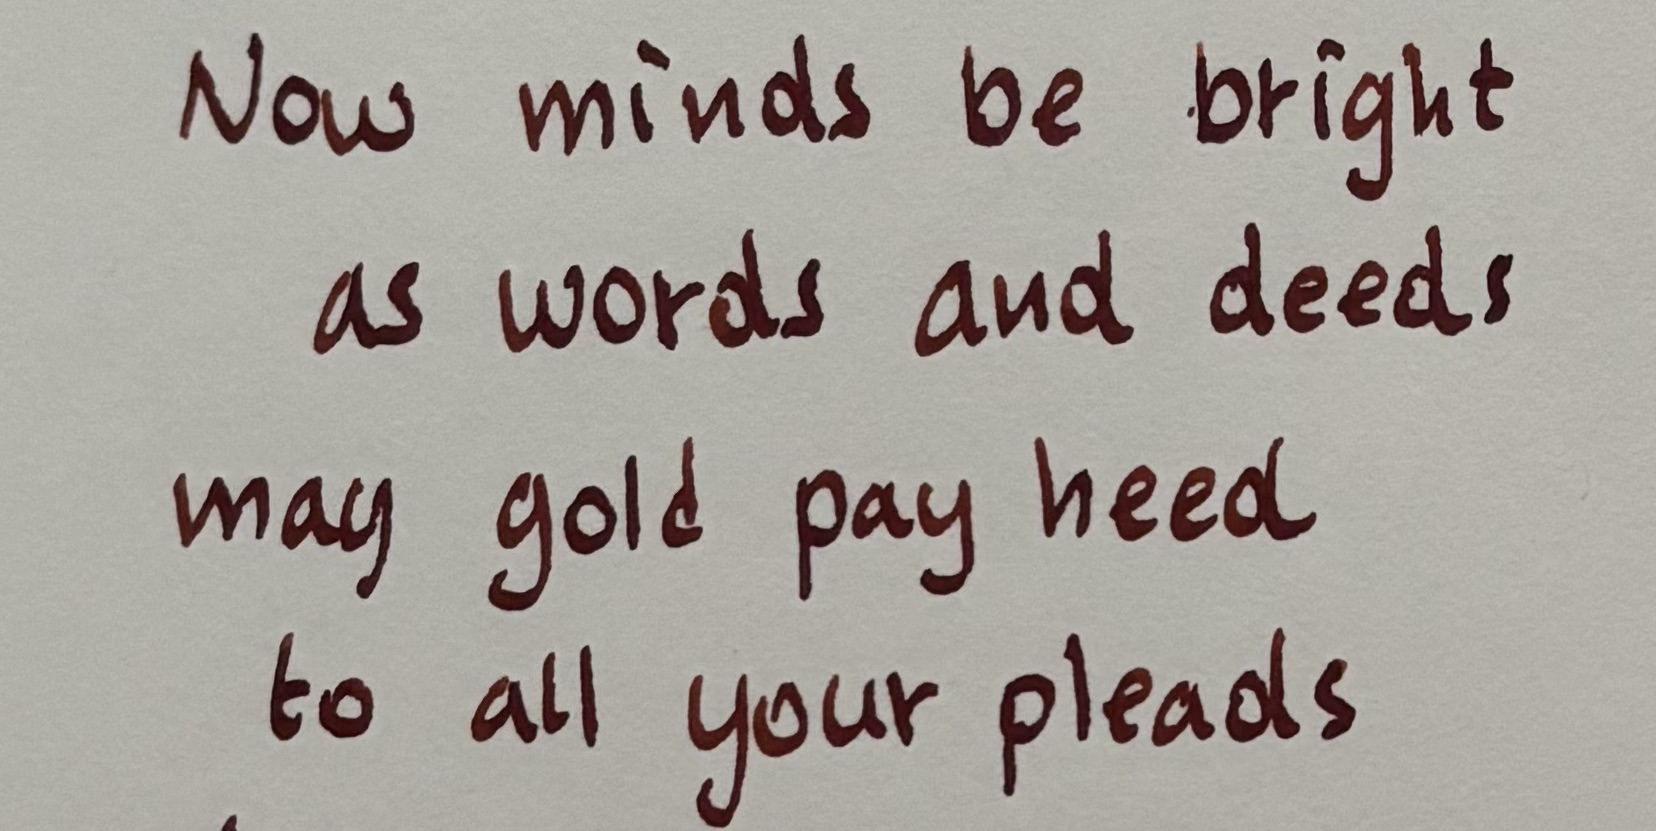 Now minds be bright
as words and deeds
may gold pay heed
to all your pleads